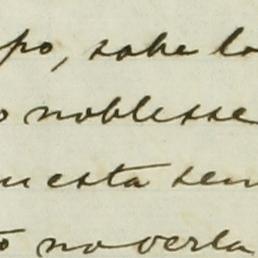 po, sabe lo
o noblesse
uesta sen
ó no verla